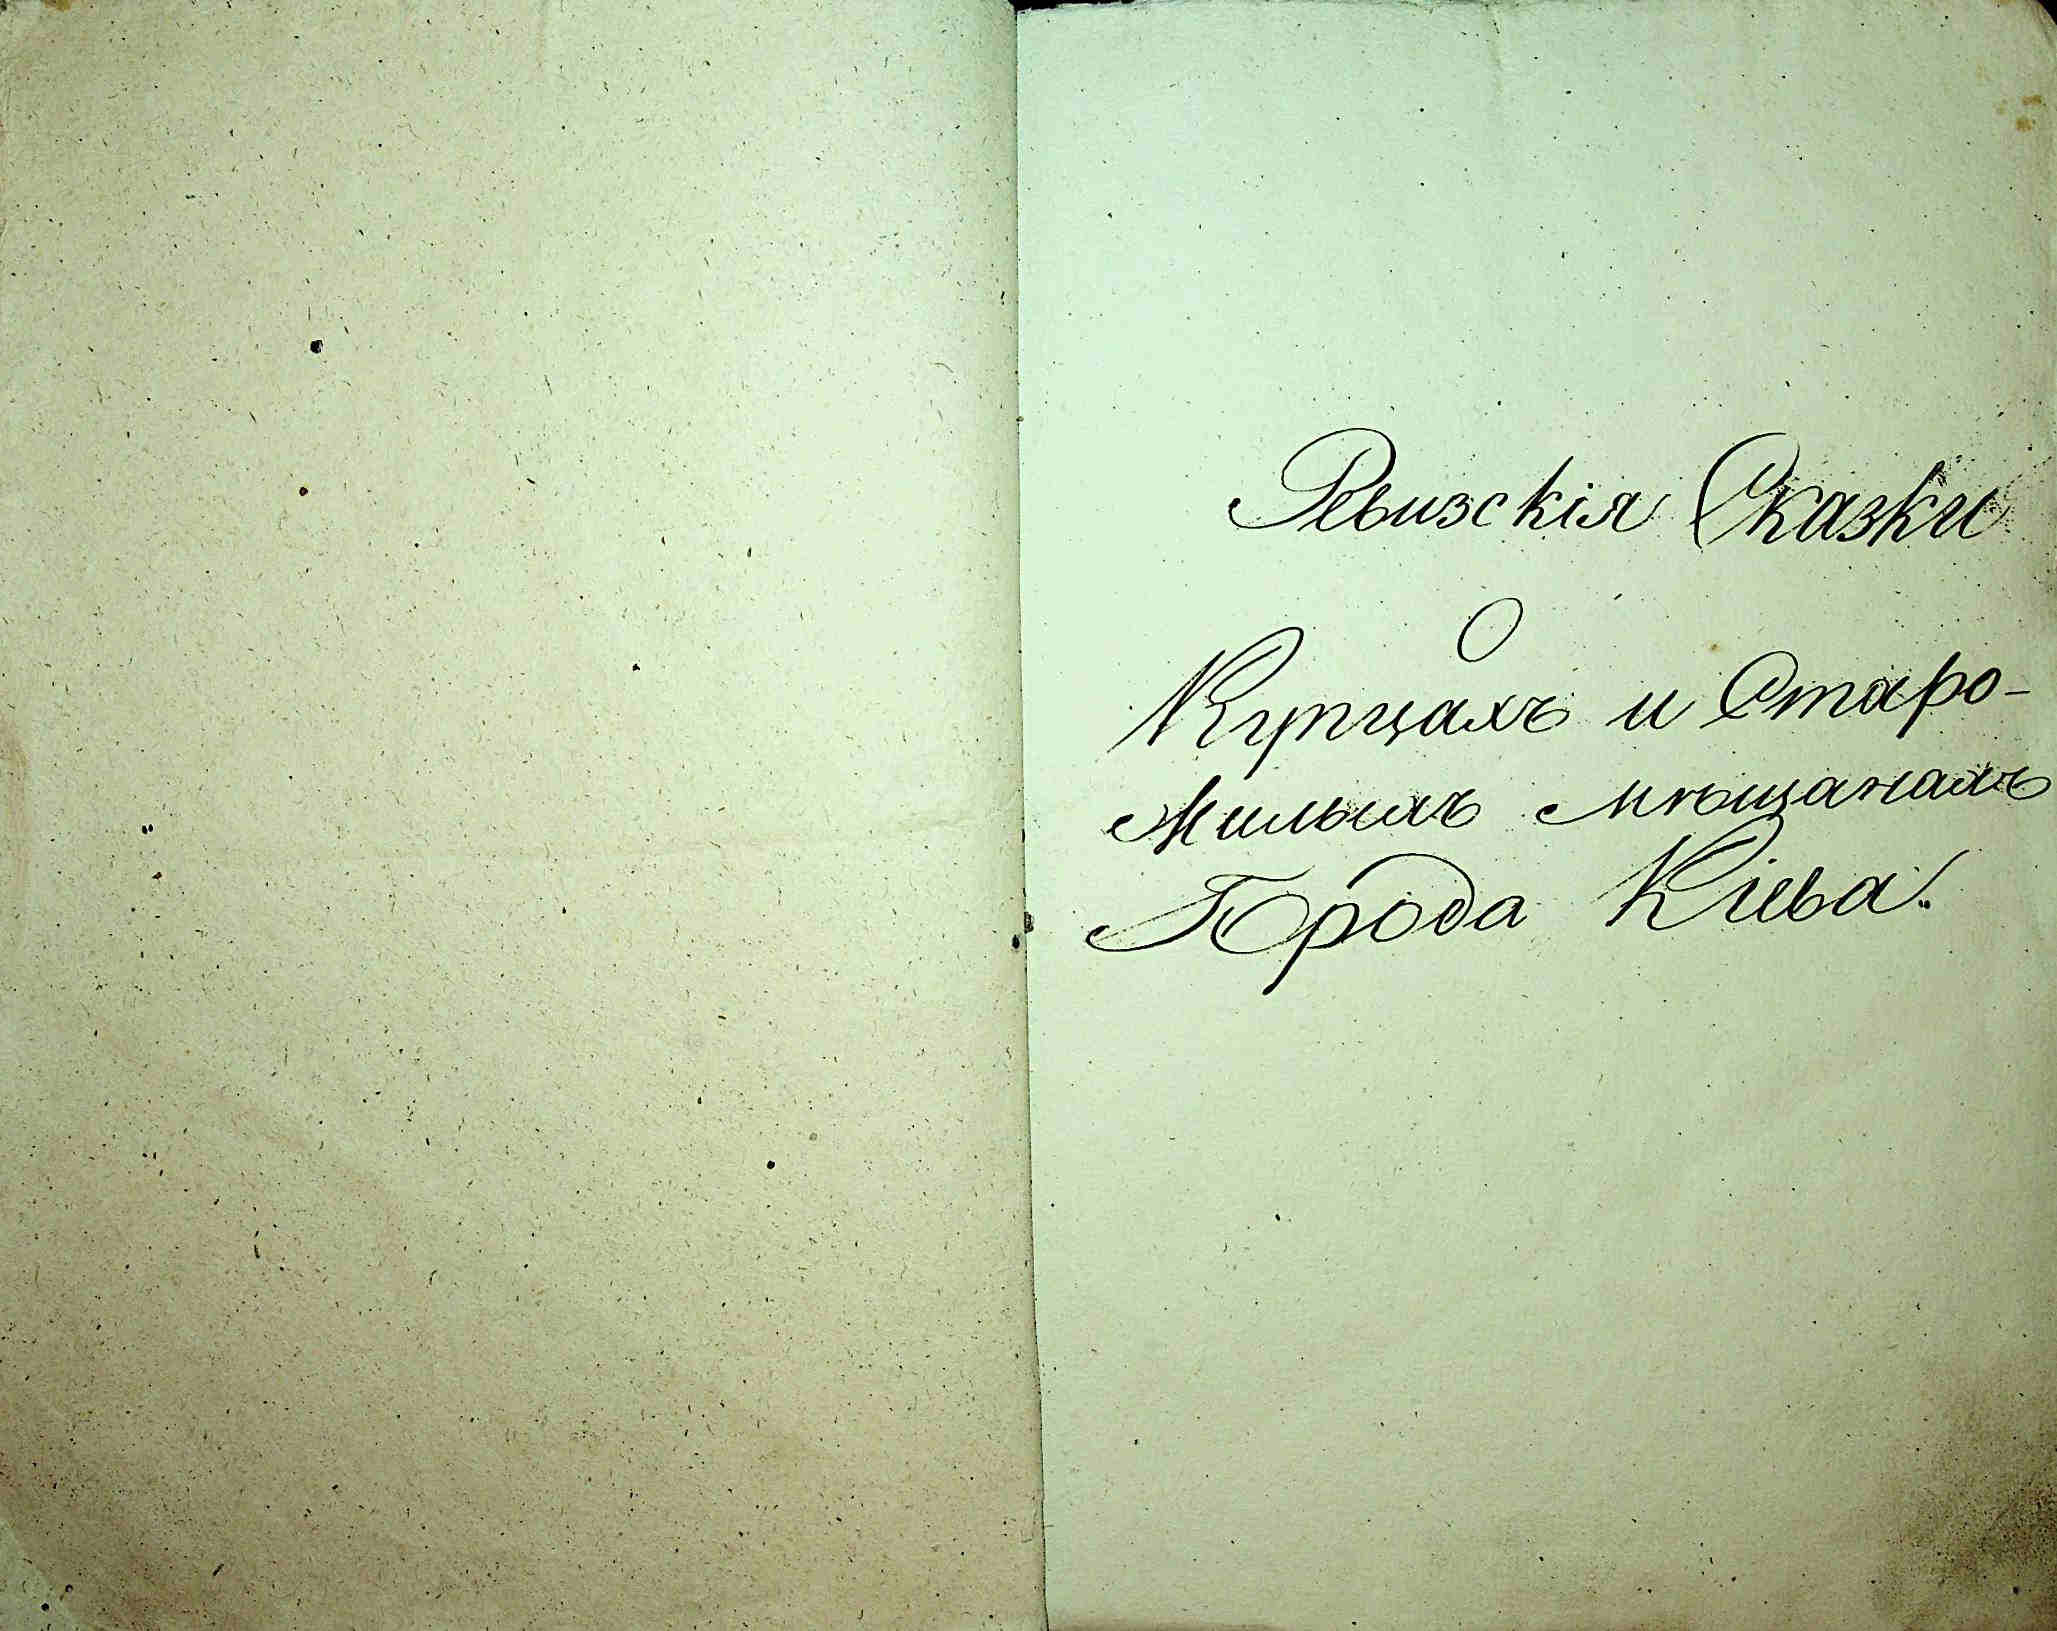 Ревизскія Сказки
О
Купцахъ и Старо-
жилыхъ мѣщанахъ
Города Кіева.